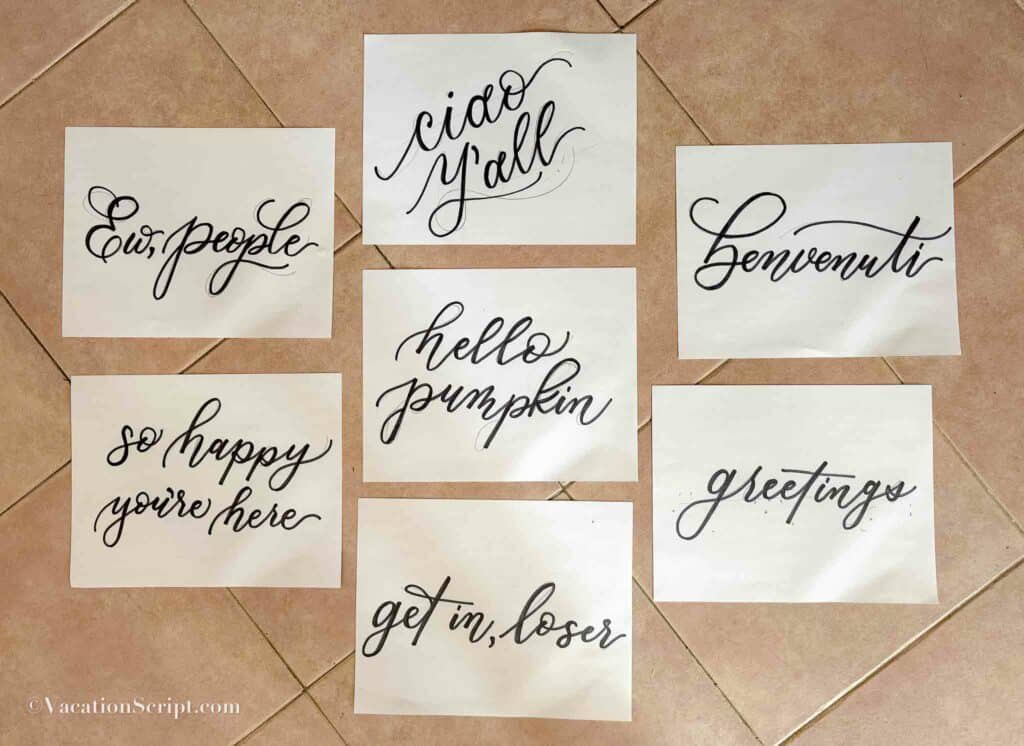 ciao
y'all
Ew, people
benvenuti
hello
pumpkin
so happy
you're here
greetings
get in, loser
©VacationScript.com